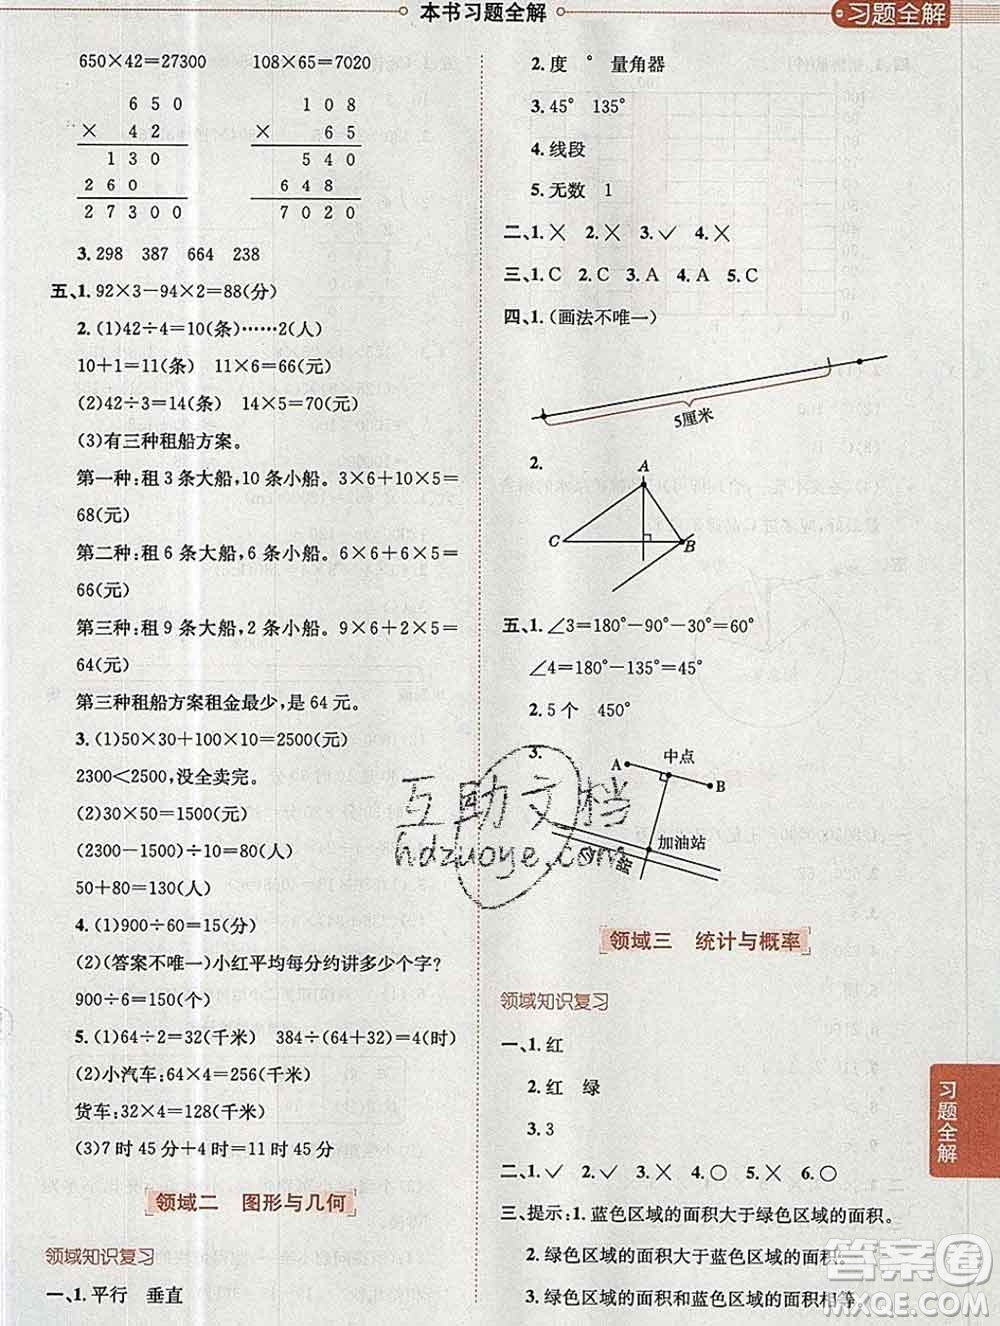 本书习题全解
习题全解
650×42=27300 108×65=7020
6 5 0
× 4 2
1 3 0 0
2 6 0 0
2 7 3 0 0
1 0 8
× 6 5
5 4 0
6 4 8
7 0 2 0
3. 298 387 664 238
五、1. 92×3-94×2=88(分)
2. (1)42÷4=10(条)……2(人)
10+1=11(条) 11×6=66(元)
(2)42÷3=14(条) 14×5=70(元)
(3)有三种租船方案。
第一种:租3条大船,10条小船。3×6+10×5=
68(元)
第二种:租6条大船,6条小船。6×6+6×5=
66(元)
第三种:租9条大船,2条小船。9×6+2×5=
64(元)
第三种租船方案租金最少,是64元。
3. (1)50×30+100×10=2500(元)
2300<2500,没全卖完。
(2)30×50=1500(元)
(2300-1500)÷10=80(人)
50+80=130(人)
4. (1)900÷60=15(分)
(2)(答案不唯一)小红平均每分约讲多少个字?
900÷6=150(个)
5. (1)64÷2=32(千米) 384÷(64+32)=4(时)
(2)小汽车:64×4=256(千米)
货车:32×4=128(千米)
(3)7时45分+4时=11时45分
领域二 图形与几何
领域知识复习
一、1. 平行 垂直
2. 度 ° 量角器
3. 45° 135°
4. 线段
5. 无数 1
二、1. × 2. × 3. ✓ 4. ×
三、1. C 2. C 3. A 4. A 5. C
四、1. (画法不唯一)
5厘米
2.
A
C
B
五、1. ∠3=180°-90°-30°=60°
∠4=180°-135°=45°
2. 5个 450°
3.
A 中点
B
加油站
互助文档
hdzuoye.com
领域三 统计与概率
领域知识复习
一、1. 红
2. 红 绿
3. 3
二、1. ✓ 2. ✓ 3. × 4. ○ 5. × 6. ○
三、提示:1. 蓝色区域的面积大于绿色区域的面积。
2. 绿色区域的面积大于蓝色区域的面积。
3. 绿色区域的面积和蓝色区域的面积相等。
习题全解
答案圈
MXQE.COM